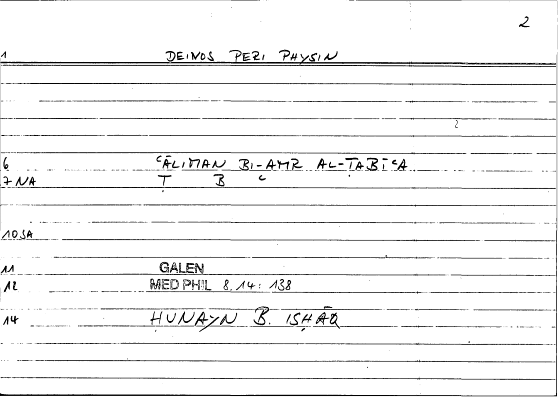 2
1 DEINOS PERI PHYSIN
6 ʿĀLIMAN BI-AMR AL-ṬABĪʿA
7 NA Ṭ B ʿ
10 SA
11 GALEN
12 MED PHIL 8.14: 138
14 ḤUNAYN B. ISḤĀQ